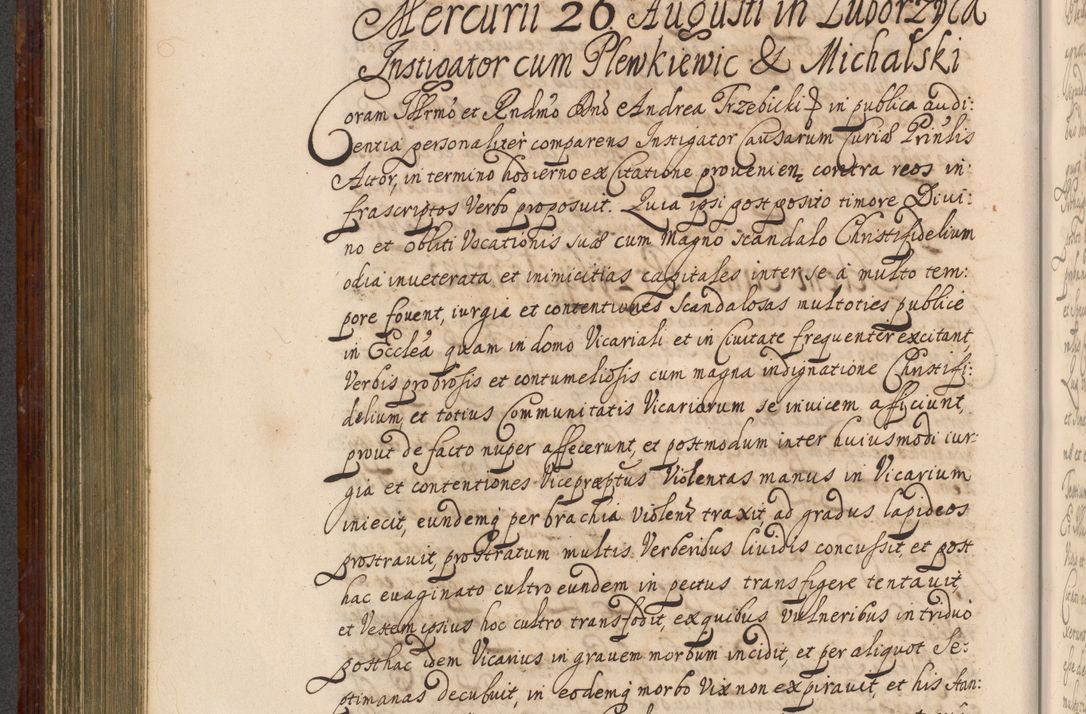 Mercurii 26 Augusti in Luborzyca
Instigator cum Plewkiewic & Michalski
Coram Illrmo et Rndmo Dno Andrea Trzebicki in publica audi:
entia personaliter comparens Instigator Causarum Curiæ Prinlis
Actor, in termino hodierno ex Citatione provenien, contra reos in:
frascriptos Verbo proposuit. Quia ipsi post posito timore Divi:
no et obliti Vocationis suæ cum Magno scandalo Christifidelium
odia inveterata et inimicitias capitales inter se à multo tem:
pore fovent, iurgia et contentiones scandalosas multoties publicè
in Ecclea quam in domo Vicariali et in Civitate frequenter excitant,
Verbis probrosis et contumeliosis cum magna indignatione Christifi:
delium, et totius Communitatis Vicariorum se invicem afficiunt,
prout de facto nuper affecerunt, et postmodum inter huiusmodi iur:
gia et contentiones Vicepræptus Violentas manus in Vicarium
iniecit, eundemq per brachia violenr traxit, ad gradus lapideos
prostravit, prostratum multis Verberibus lividis concussit, et post
hac evaginato cultro eundem in pectus transfigere tentavit,
et Vestem ipsius hoc cultro transfodit, ex quibus vulneribus in triduo
posthac idem Vicarius in gravem morbum incidit, et per aliquot Se:
ptimanas decubuit, in eodemq morbo Vix non expiravit, et his stan: